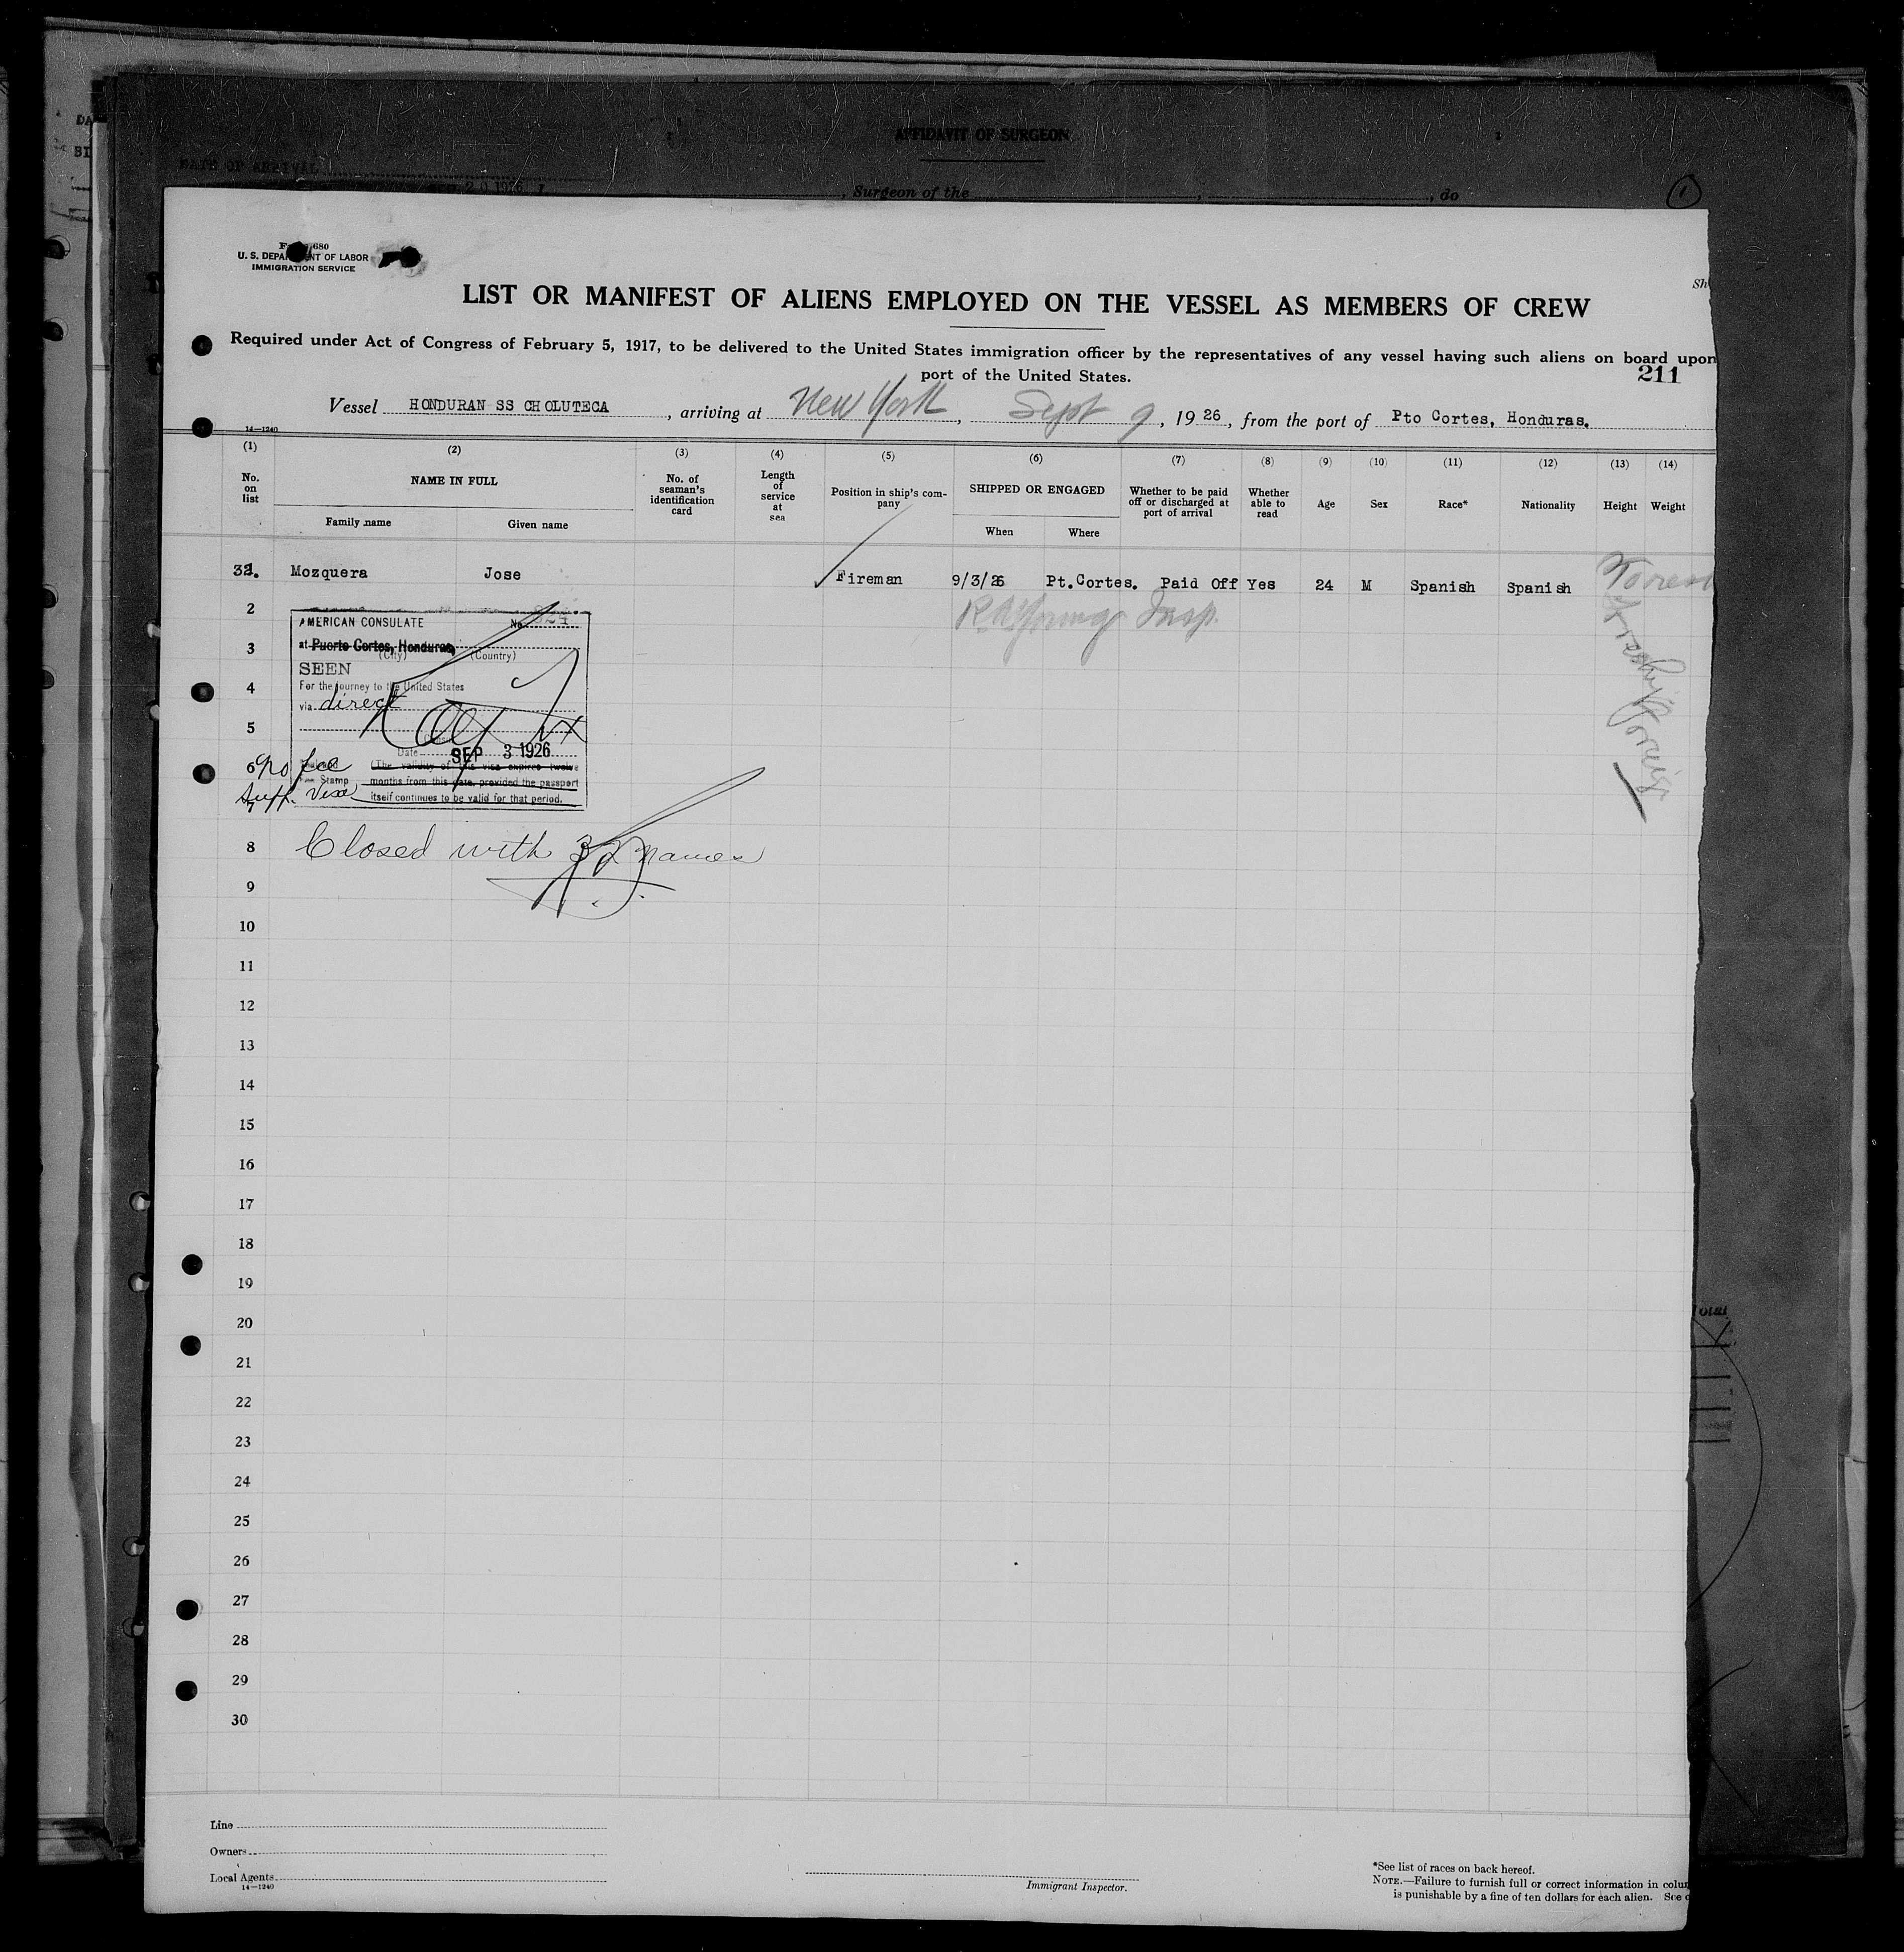 AFFIDAVIT OF SURGEON
DATE OF ARRIVAL
20 1926 I, , Surgeon of the , , do
1
680
U. S. DEPARTMENT OF LABOR
IMMIGRATION SERVICE
LIST OR MANIFEST OF ALIENS EMPLOYED ON THE VESSEL AS MEMBERS OF CREW
Required under Act of Congress of February 5, 1917, to be delivered to the United States immigration officer by the representatives of any vessel having such aliens on board upon
port of the United States.
211
Vessel HONDURAN SS CHOLUTECA, arriving at New York, Sept 9, 1926, from the port of Pto Cortes, Honduras.
14—1240
(1) (2) (3) (4) (5) (6) (7) (8) (9) (10) (11) (12) (13) (14)
No. on list NAME IN FULL Family name Given name No. of seaman's identification card Length of service at sea Position in ship's company SHIPPED OR ENGAGED When Where Whether to be paid off or discharged at port of arrival Whether able to read Age Sex Race* Nationality Height Weight
32. Mozquera Jose Fireman 9/3/26 Pt.Cortes. Paid Off Yes 24 M Spanish Spanish
2
AMERICAN CONSULATE No. 824
3
at Puerto Cortes, Honduras,
(City) (Country)
SEEN
4
For the journey to the United States
via direct
5
Date SEP 3 1926
6
No fee
(The validity of this visa expires twelve
Stamp months from this date, provided the passport
7
itself continues to be valid for that period.
8 Closed with 32 names
9
10
11
12
13
14
15
16
17
18
19
20
21
22
23
24
25
26
27
28
29
30
Total
Line
Owners
Local Agents
14—1240
Immigrant Inspector.
*See list of races on back hereof.
NOTE.—Failure to furnish full or correct information in colu
is punishable by a fine of ten dollars for each alien. See